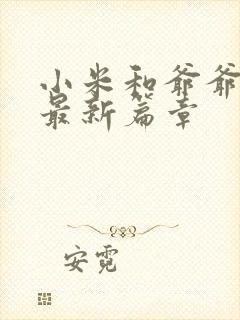 小米和爷爷
最新篇章
安霓